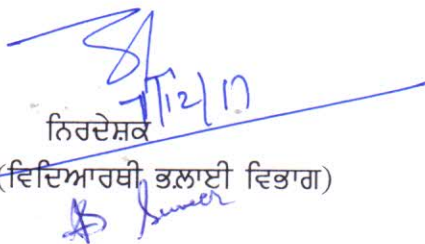 7/12/17
ਨਿਰਦੇਸ਼ਕ
(ਵਿਦਿਆਰਥੀ ਭਲਾਈ ਵਿਭਾਗ)